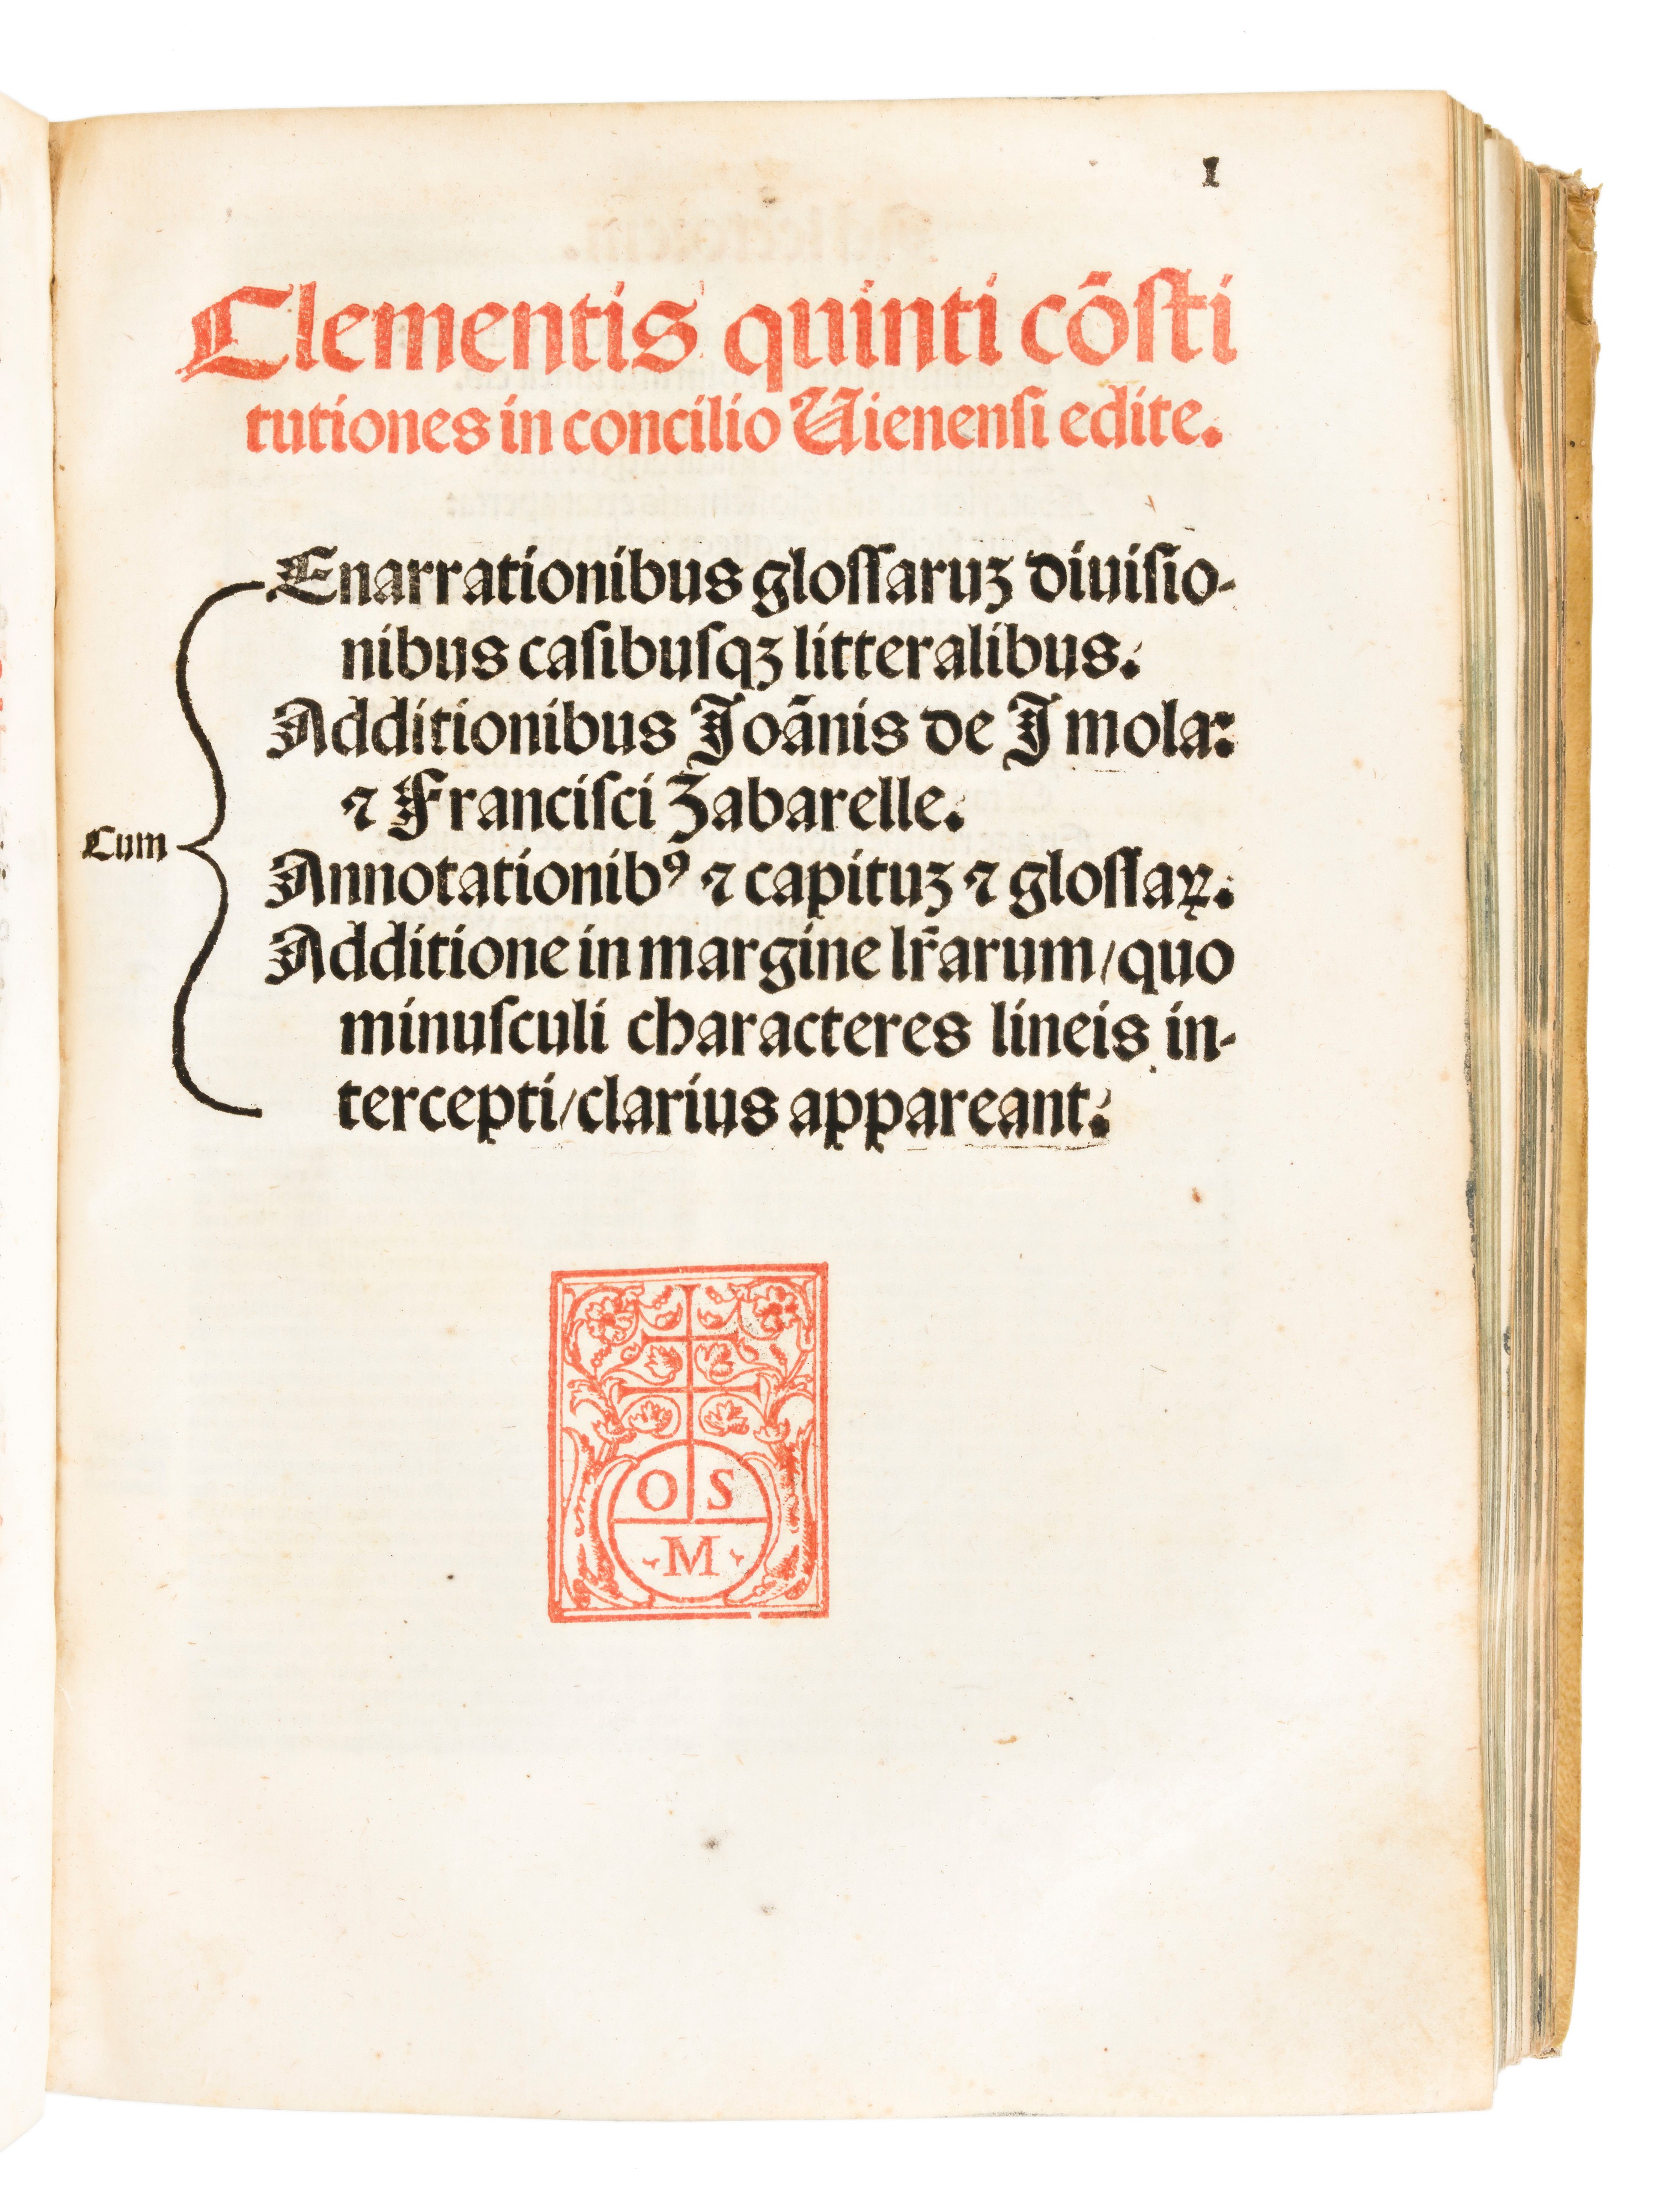 1
Clementis quinti cōsti
tutiones in concilio Uienensi edite.
Enarrationibus glossaruꝫ diuisio-
nibus casibusqꝫ litteralibus.
Additionibus Joānis de Imola:
⁊ Francisci Zabarelle.
Cum
Annotationibꝰ ⁊ capituꝫ ⁊ glossaꝝ.
Additione in margine lr̄arum/quo
minusculi characteres lineis in-
tercepti/clarius appareant.
O S
M